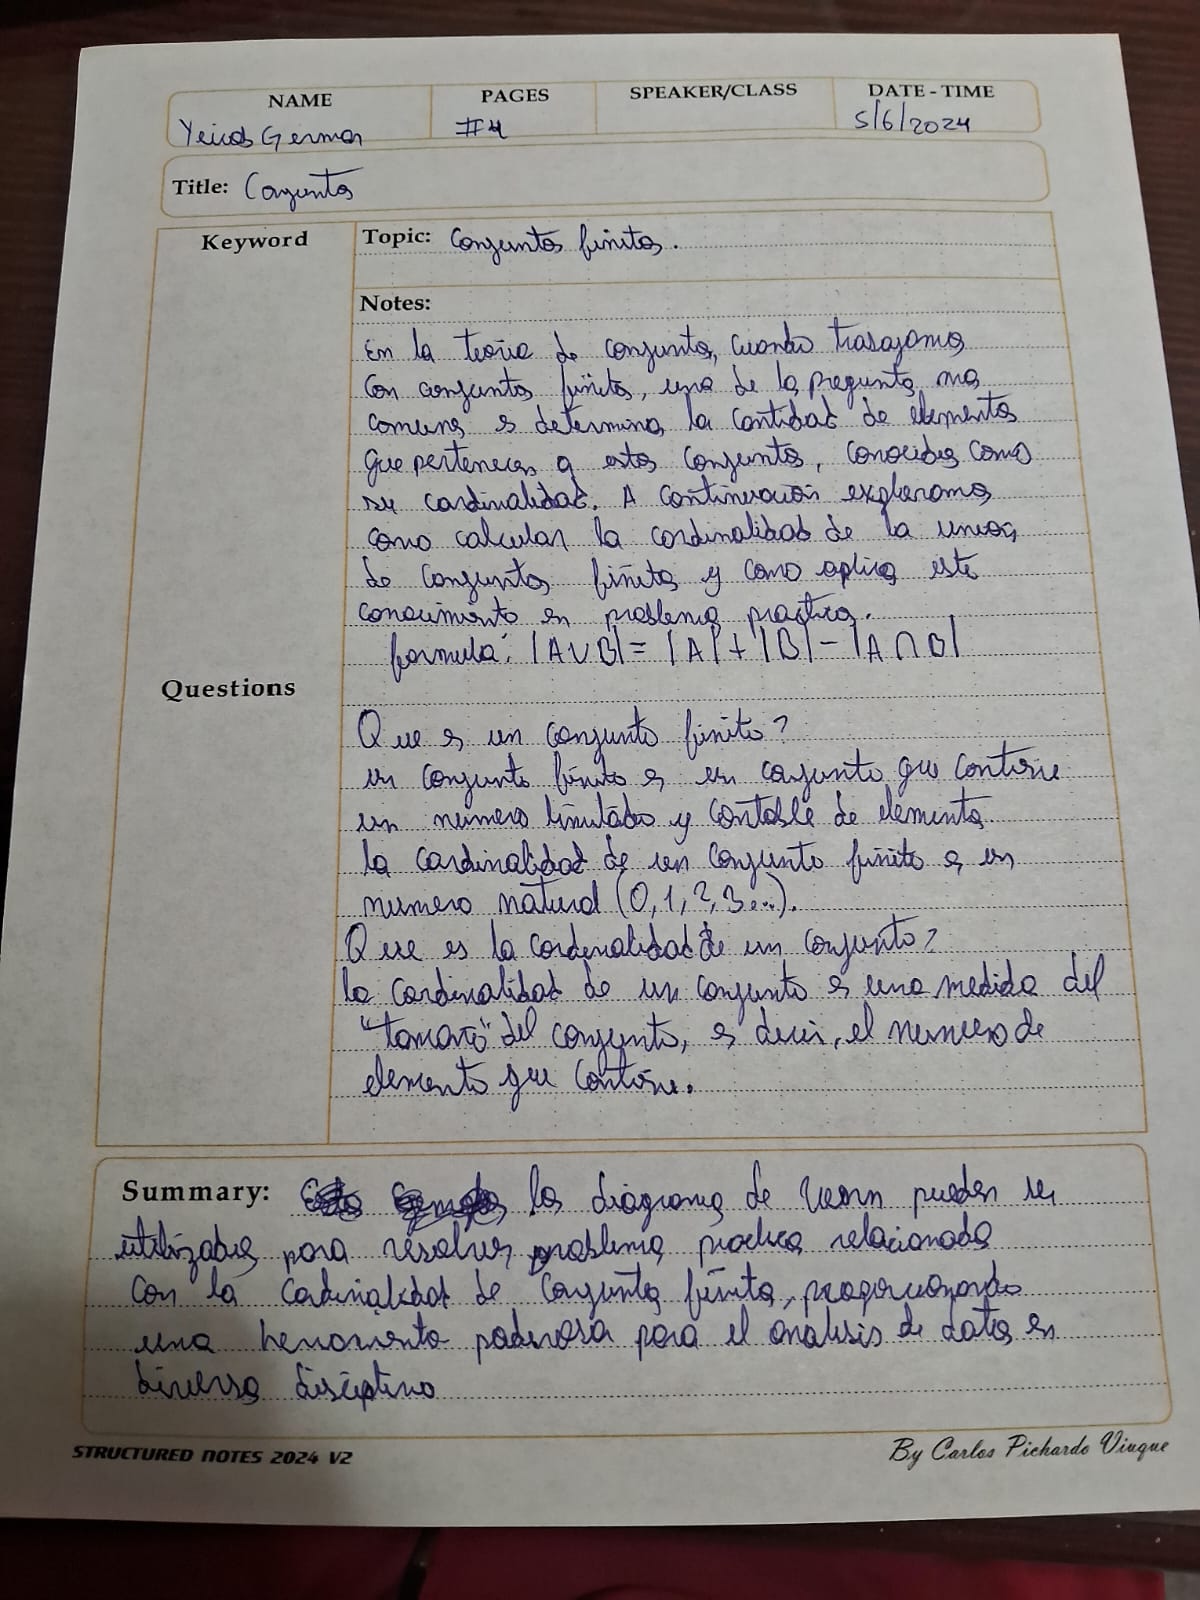 NAME PAGES SPEAKER/CLASS DATE - TIME
German #4 5/6/2024
Title: Conjuntos
Keyword Topic: Conjuntos finitos.
Notes:
En la teoria de conjuntos, cuando trabajamos
con conjuntos finitos, una de las preguntas mas
comunes es determinar la cantidad de elementos
que pertenecen a estos conjuntos, conocidos como
su cardinalidad. A continuación exploramos
como calcular la cardinalidad de la union
de conjuntos finitos y como aplicar este
conocimiento en problemas practicos.
formula: |A∪B| = |A| + |B| - |A∩B|
Questions
Que es un conjunto finito?
un conjunto finito es un conjunto que contiene
un numero limitado y contable de elementos
la cardinalidad de un conjunto finito es un
numero natural (0,1,2,3...).
Que es la cardinalidad de un conjunto?
la cardinalidad de un conjunto es una medida del
"tamaño" del conjunto, es decir, el numero de
elementos que contiene.
Summary: los diagramas de Venn pueden ser
utilizados para resolver problemas practicos relacionados
con la cardinalidad de conjuntos finitos, proporcionando
una herramienta poderosa para el analisis de datos en
diversas disciplinas
STRUCTURED NOTES 2024 V2
By Carlos Pichardo Viuque